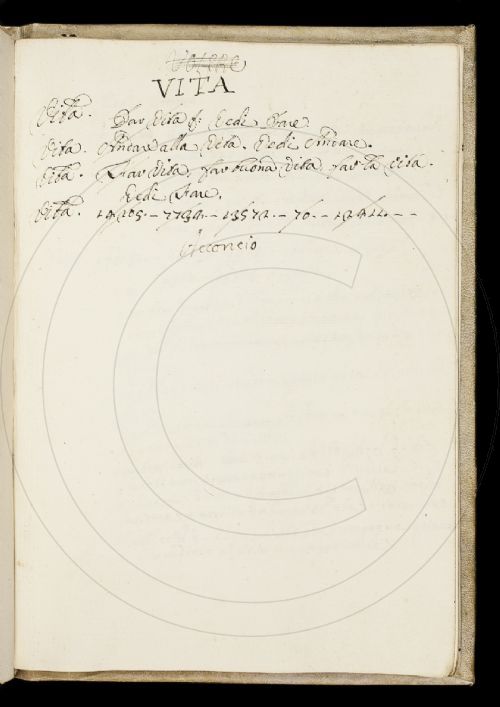 VITA
Vita. Dar Vita &: Vedi Dare
Vita. Andare alla Vita. Vedi Andare.
Vita. Far Vita, far buona Vita, far la Vita.
Vedi Fare.
Vita. 7732. - 13572. - 70. -